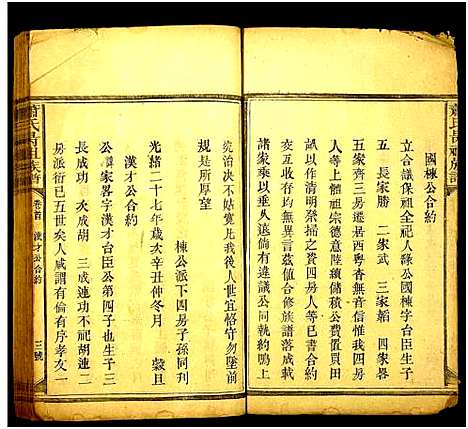 蕭氏昌祖族譜
國棟公合約
立合議保祖全祀人緣公國棟字台臣生子
五 長家勝 二家武 三家韜 四家畧
五家齊 五三房遷居西粵杳無音信惟我四房
人等上體祖宗德意陸續儲積公費置買田
產作清明祭掃之費四房人等已與書
立合同存據茲值合修族譜落成載
諸家乘以垂久遠倘有違議公同執約鳴上
究治決不姑寬凡我後人世宜恪守勿墜前
規是所厚望
棟公派下四房子孫同刋
光緒二十七年歲次辛丑仲冬月 穀旦
漢才公合約
公諱家畧字漢才台臣公第四子也生子三
長成功 次成胡 三成連功不祀胡連二
房派衍已五世矣人咸謂有倫有序孝友一
蕭氏昌祖族譜 卷首 漢才公合約 三號